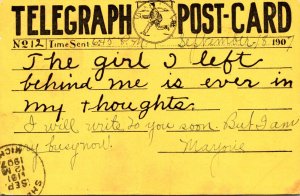 TELEGRAPH POST-CARD
No 12 Time Sent September 8 1907
The girl I left
behind me is ever in
my thoughts.
I will write to you soon. But I am
very busy now. Marjorie
SEP
12 M
1907
MICH.